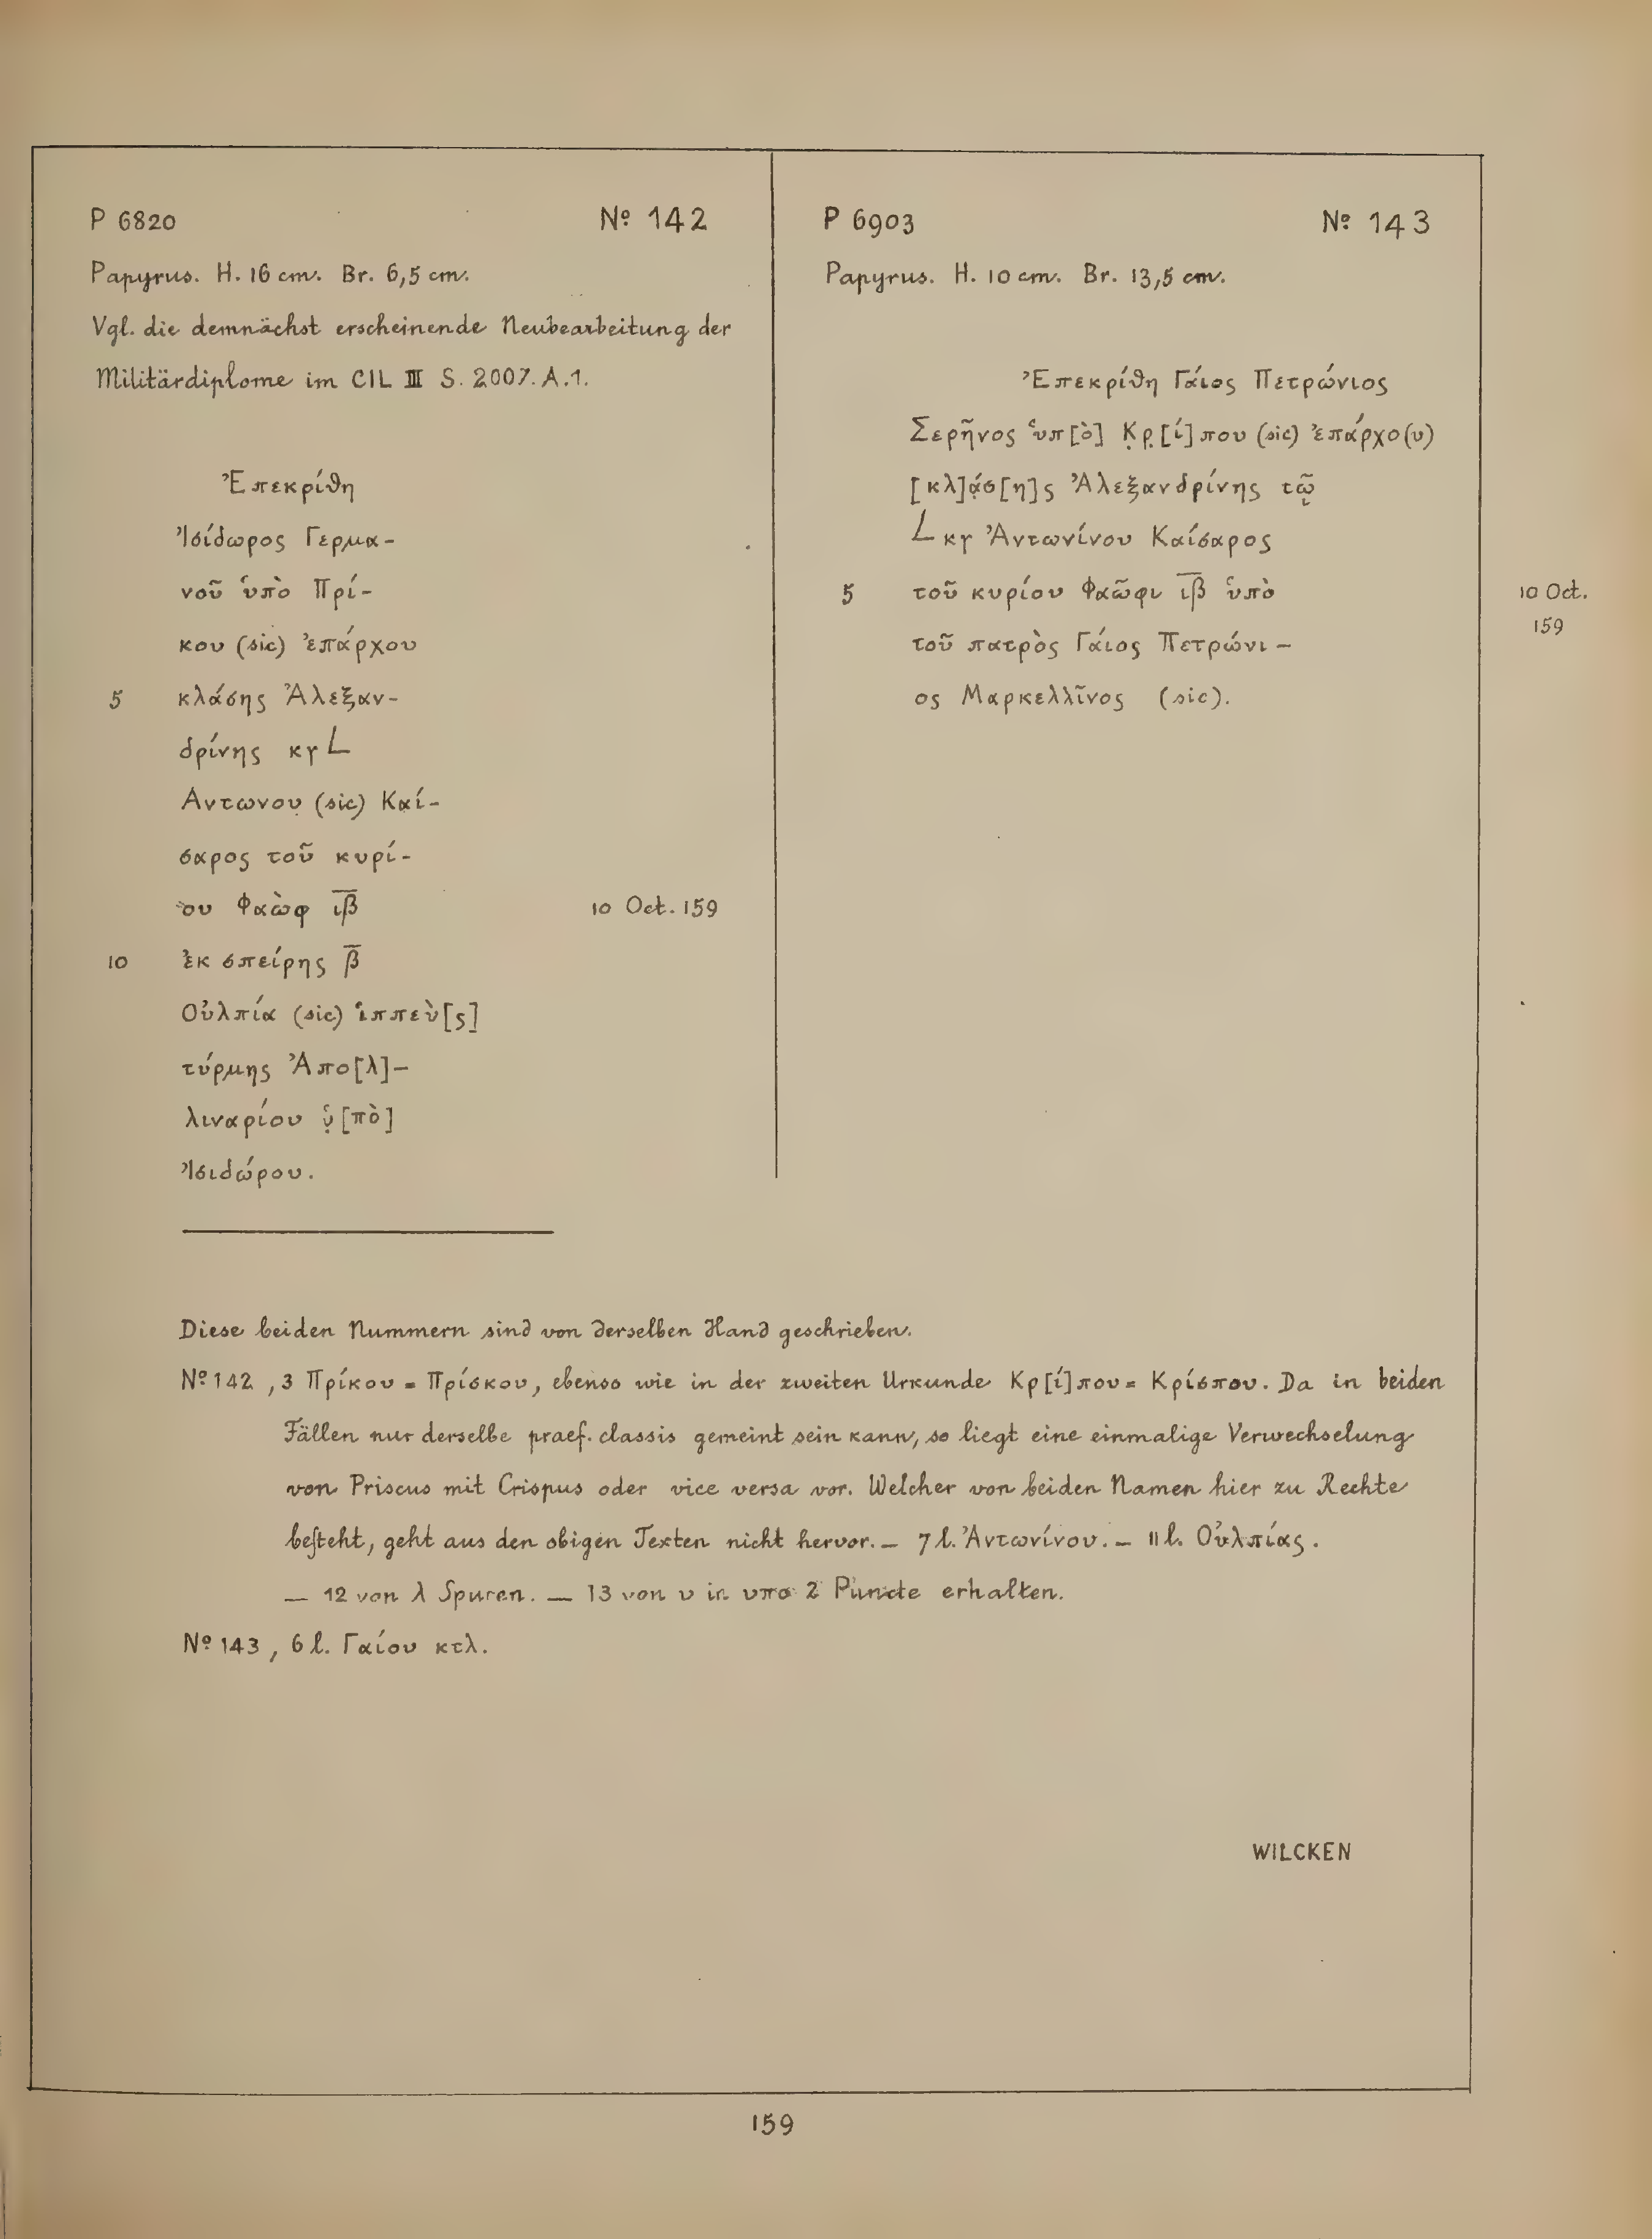 P 6820 Nº 142
Papyrus. H. 16 cm. Br. 6,5 cm.
Vgl. die demnächst erscheinende Neubearbeitung der
Militärdiplome im CIL III S. 2007. A.1.
Ἐπεκρίθη
Ἰσίδωρος Γερμα-
νοῦ ὑπὸ Πρί-
κου (sic) ἐπάρχου
5 κλάσης Ἀλεξαν-
δρίνης κγ L
Αντωνου̣ (sic) Καί-
σαρος τοῦ κυρί-
ου Φαὼφ ι̅β̅ 10 Oct. 159
10 ἐκ σπείρης β̅
Οὐλπία (sic) ἱππεὺ[ς]
τύρμης Ἀπο[λ]-
λιναρίου ὑ̣[πὸ]
Ἰσιδώρου.
P 6903 Nº 143
Papyrus. H. 10 cm. Br. 13,5 cm.
Ἐπεκρίθη Γάιος Πετρώνιος
Σερῆνος ὑπ[ὸ] Κ̣ρ̣[ί]που (sic) ἐπάρχο(υ)
[κλ]ά̣σ[η]ς Ἀλεξανδρίνης τῷ
L κγ Ἀντωνίνου Καίσαρος
5 τοῦ κυρίου Φαῶφι ι̅β̅ ὑπὸ 10 Oct.
159
τοῦ πατρὸς Γάιος Πετρώνι-
ος Μαρκελλῖνος (sic).
Diese beiden Nummern sind von derselben Hand geschrieben.
Nº 142, 3 Πρίκου = Πρίσκου, ebenso wie in der zweiten Urkunde Κρ[ί]που = Κρίσπου. Da in beiden
Fällen nur derselbe praef. classis gemeint sein kann, so liegt eine einmalige Verwechselung
von Priscus mit Crispus oder vice versa vor. Welcher von beiden Namen hier zu Rechte
beſteht, geht aus den obigen Texten nicht hervor. — 7 l. Ἀντωνίνου. — 11 l. Οὐλπίας.
— 12 von λ Spuren. — 13 von υ in υπο 2 Puncte erhalten.
Nº 143, 6 l. Γαίου κτλ.
WILCKEN
159